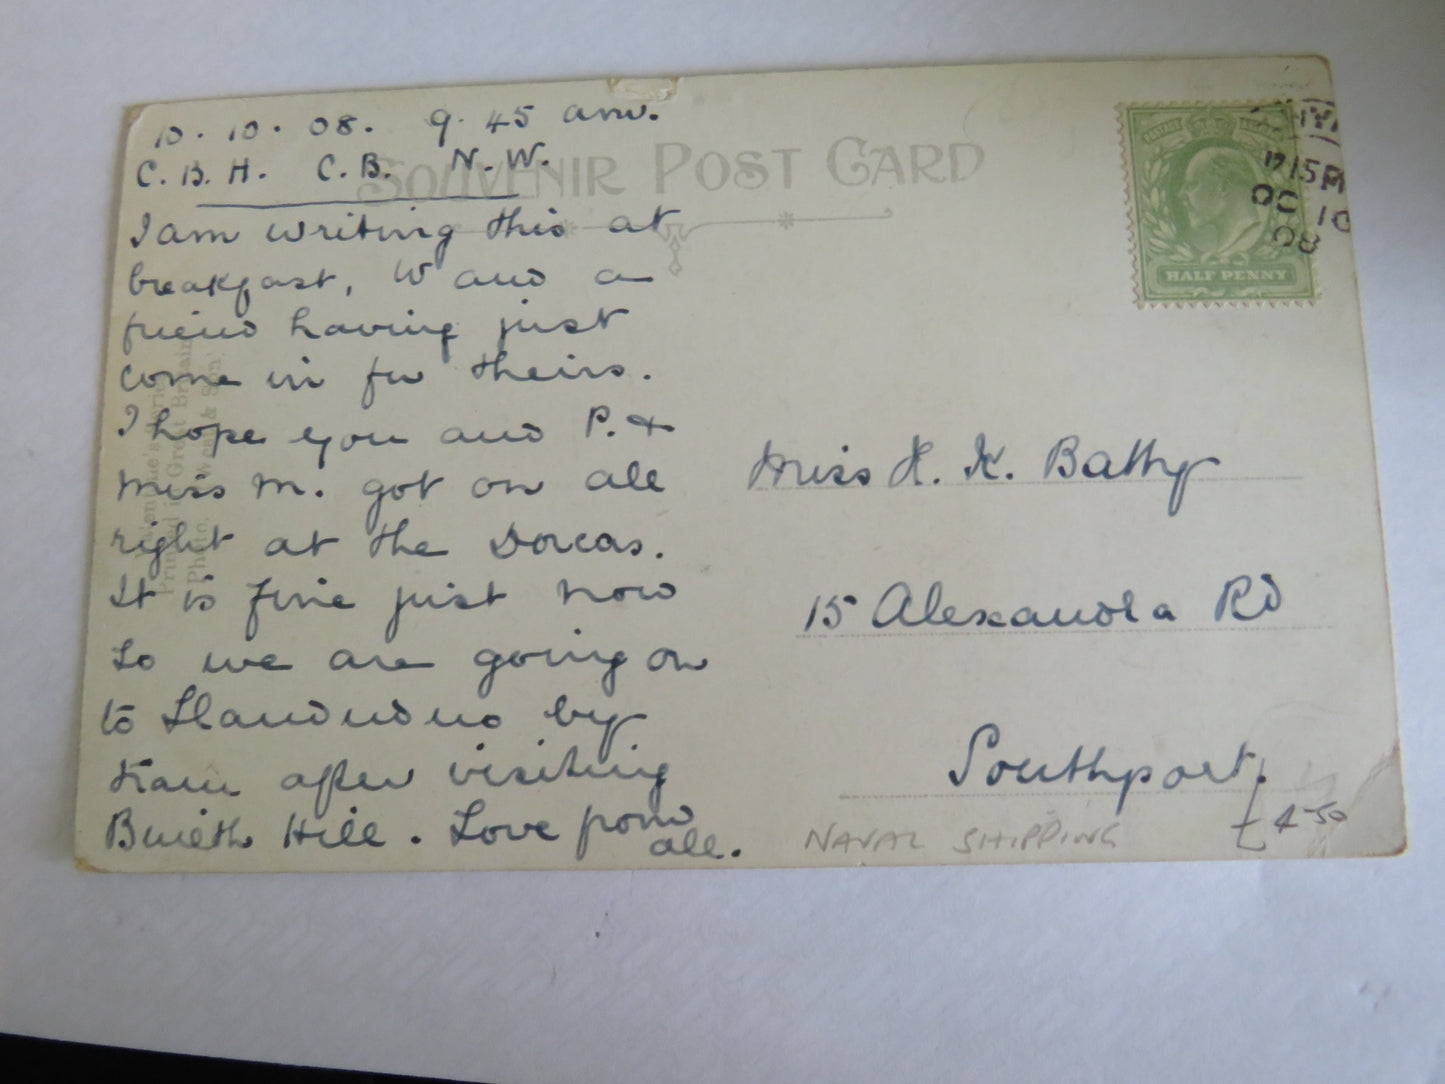 10. 10. 08. 9. 45 am.
C. B. H. C. B. N. W.
SOUVENIR POST CARD
I am writing this at
breakfast, W and a
friend having just
come in for theirs.
I hope you and P. &
Miss M. got on all
right at the Dorcas.
It is fine just now
so we are going on
to Llandudno by
tram after visiting
Hill. Love from
all.
Printed in Great Britain
Photo. & Son
HALF PENNY
15 PM
OC 10
08
Miss H. K. Bathy
15 Alexandra Rd
Southport.
NAVAL SHIPPING
£4-50